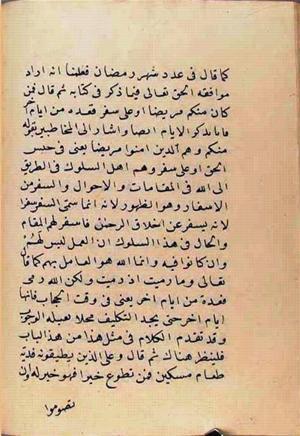 كما قال فى عدد شهر رمضان فعلمنا انه اراد
موافقة الحق تعالى فيما ذكر فى كتابه ثم قال فمن
كان منكم مريضا او على سفر فعدة من ايام اخر
فاما يذكر الايام ايضا واشار الى المخاطبين بقوله
منكم وهم الذين امنوا مريضا يعنى فى حبس
الحق او على سفر وهم اهل السلوك فى الطريق
الى الله فى المقامات والاحوال والسفر من
الاسفار وهو الظهور لانه انما سمى السفر سفرا
لانه يسفر عن اخلاق الرجال فاسفر لهم المقام
والحال فى هذا السلوك ان العمل ليس لهم
وان كانوا فيه وانما الله هو العامل بهم كما قال
تعالى وما رميت اذ رميت ولكن الله رمى
فعدة من ايام اخر يعنى فى وقت الحجاب فانها
ايام اخر حتى يجد التكليف محلا يقبله الوجوب
وقد تقدم الكلام فى مثل هذا من هذا الباب
فلينظر هناك ثم قال وعلى الذين يطيقونه فدية
طعام مسكين فمن تطوع خيرا فهو خير له وان
تصوموا